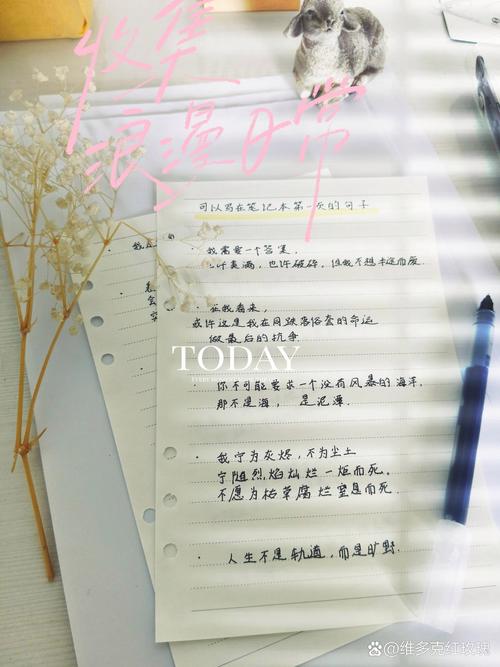 收集
浪漫日常
可以写在笔记本第一次的句子
· 我需要一个答案,
也许美满,也许破碎,但我不想半途而废.
· 在我看来,
或许这是我在同跌落俗套的命运
做最后的抗争
TODAY
EVERY
你不可能要求一个没有风暴的海洋.
那不是海, 是泥潭.
· 我宁为灰烬,不为尘土
宁阻烈焰灿烂一炬而死.
不愿为枯草腐烂窒息而死.
· 人生不是轨道,而是旷野.
我
会
维多克红玫瑰